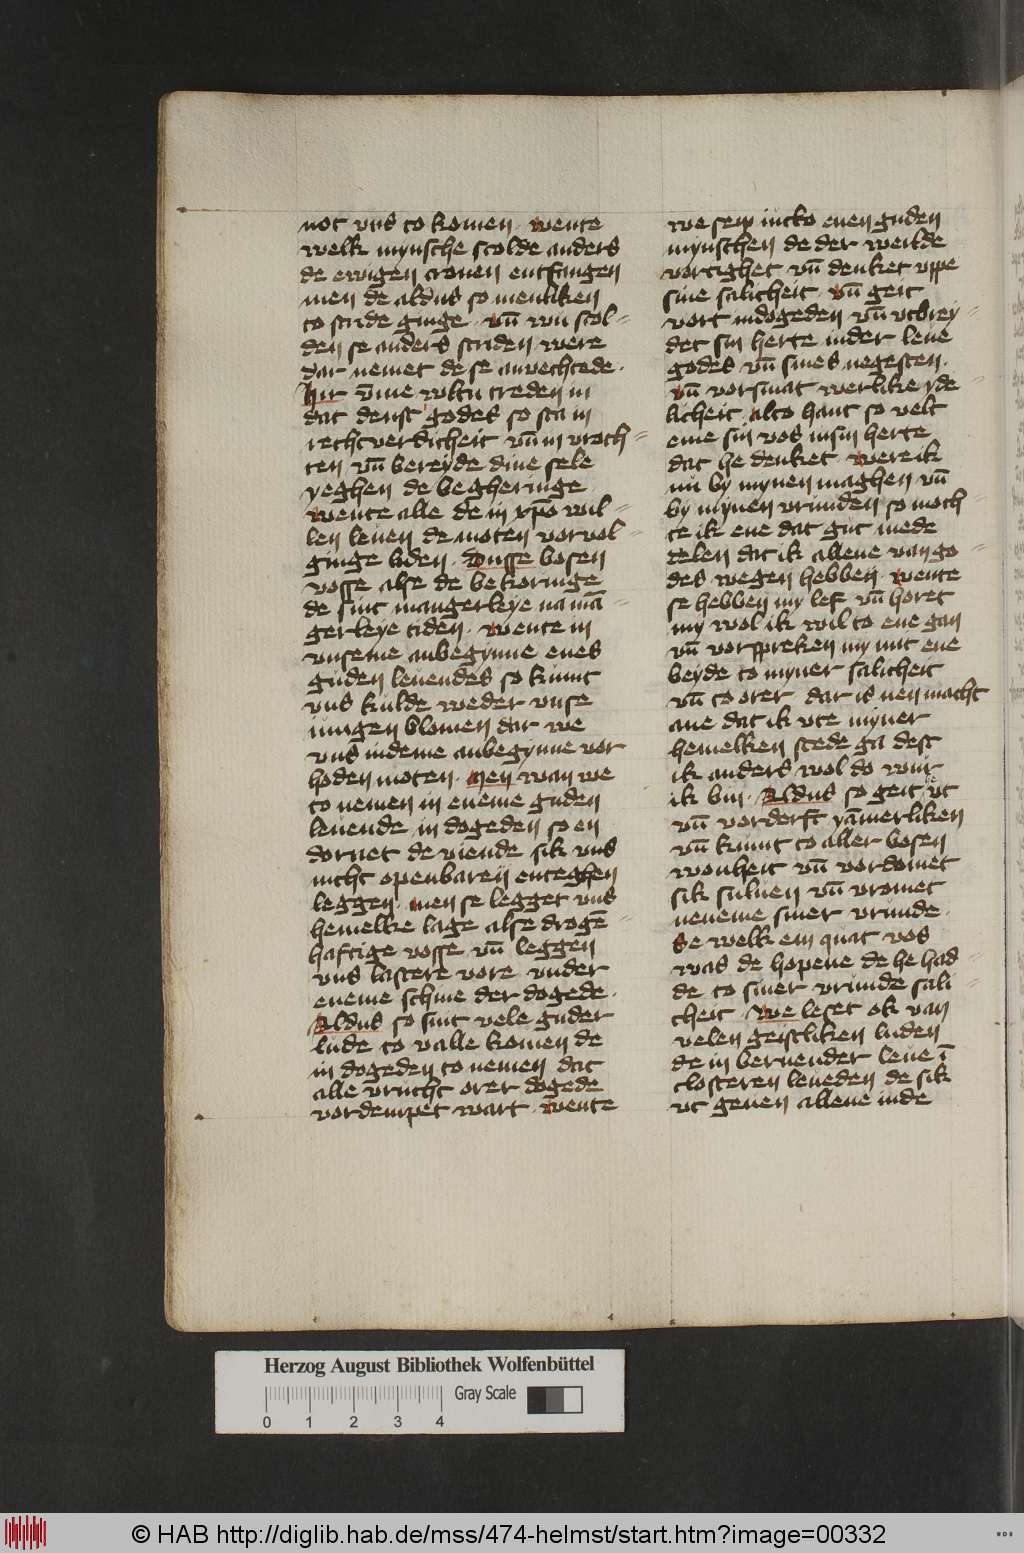 not vns to komen · wente
welk mynsche scolde anders
de ewigen cronen entfangen
men de aldus so menliken
to stride ginge · vn̄ wu scol-
den se anders striden were
dar nemet de se anvechtede ·
Hir vm̄e wltu treden in
dat denst godes so sta in
rechtverdicheit vn̄ in vroch-
ten vn̄ bereyde dine sele
yeghen de begheringe
wente alle de in xp̄o wil-
len leuen de moten vorvol-
ginge liden · Dusse bosen
vosse alse de bekoringe
de sint mangerleye na mā-
gerleye tiden · wente in
vnseme anbegynne enes
guden leuendes so kumt
vns kulde weder vnse
iungen blomen dar we
vns indeme anbegynne vor
hoden moten · Men wan we
to nemen in eneme guden
leuende in dogeden so en
dornet de viende sik vns
nicht openbaren enteghen
leggen · men se legget vns
hemelke lage alse drogē-
haftige vosse vn̄ leggen
vns lastere vore vnder
eneme schine der dogede ·
Aldus so sint vele guder
lude to valle komen de
in dogeden to nemen dat
alle vrucht orer dogede
vordempet wart · wente
we seyn iucko enen guden
mynschen de der werlde
vortighet vn̄ denket vppe
sine salicheit · vn̄ geit
vort indogeden vn̄ vtbrey-
det sin herte inder leue
godes vn̄ sines negesten ·
vn̄ vorsmat werlike yde
licheit alto hant so velt
eme sin vos insin herte
dat he denket · were ik
nu by mynen maghen vn̄
by mynen vrunden so moch-
te ik ene dat gut mede
delen dat ik allene van go-
des wegen hebben · wente
se hebben my lef vn̄ horet
my wol ik wil to ene gan
vn̄ vorspreken my mit ene
beyde to myner salicheit
vn̄ to orer dar is nen macht
ane dat ik vte myner
hemelken stede ga dest
ik anders wol do wur
ik bin · Aldus so geit he vt
vn̄ vorderft yāmerliken
vn̄ kumt to aller bosen
wonheit vn̄ vordomet
sik suluen vn̄ vromet
neneme siner vrunde ·
Se welk ein quat vos
was de hopene de he had-
de to siner vrunde sali-
cheit · We leset ok van
velen geistliken luden
de in bernender leue ī
closteren leueden de sik
vt geuen allene inde
Herzog August Bibliothek Wolfenbüttel
0 1 2 3 4 Gray Scale
© HAB http://diglib.hab.de/mss/474-helmst/start.htm?image=00332